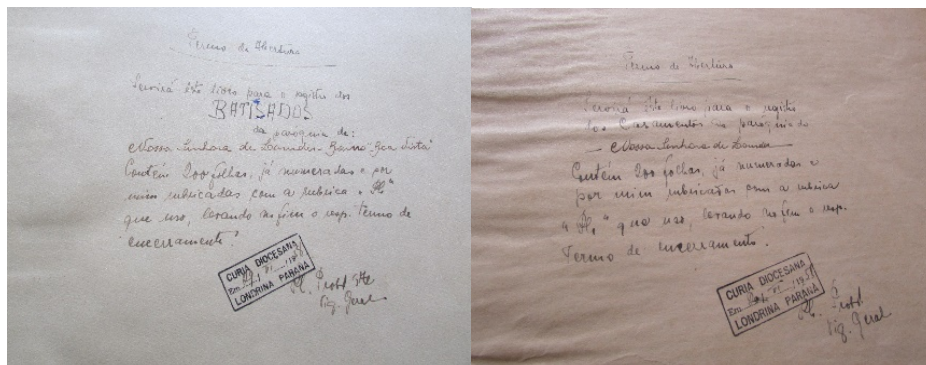 Termo de Abertura
Servirá êste livro para o registro dos
BATISADOS
da paróquia de:
Nossa Senhora de Lourdes - Bairro Boa Vista
Contém 200 folhas, já numeradas e por
mim rubricadas com a rubrica
que uso, levando no fim o resp. Termo de
encerramento.
CURIA DIOCESANA
Em
LONDRINA PARANÁ
Vig. Geral
Termo de Abertura
Servirá êste livro para o registro
dos Casamentos da paróquia de
Nossa Senhora de Lourdes
Contém 200 folhas, já numeradas e
por mim rubricadas com a rubrica
que uso, levando no fim o resp.
Termo de encerramento.
CURIA DIOCESANA
Em
LONDRINA PARANÁ
Vig. Geral